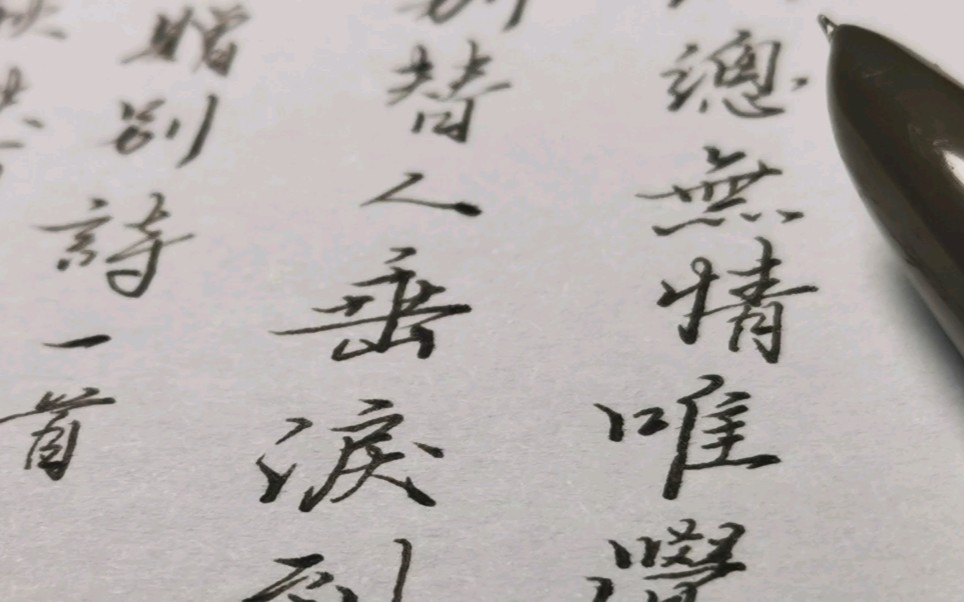 總無情唯
別替人垂淚到
贈別詩一首